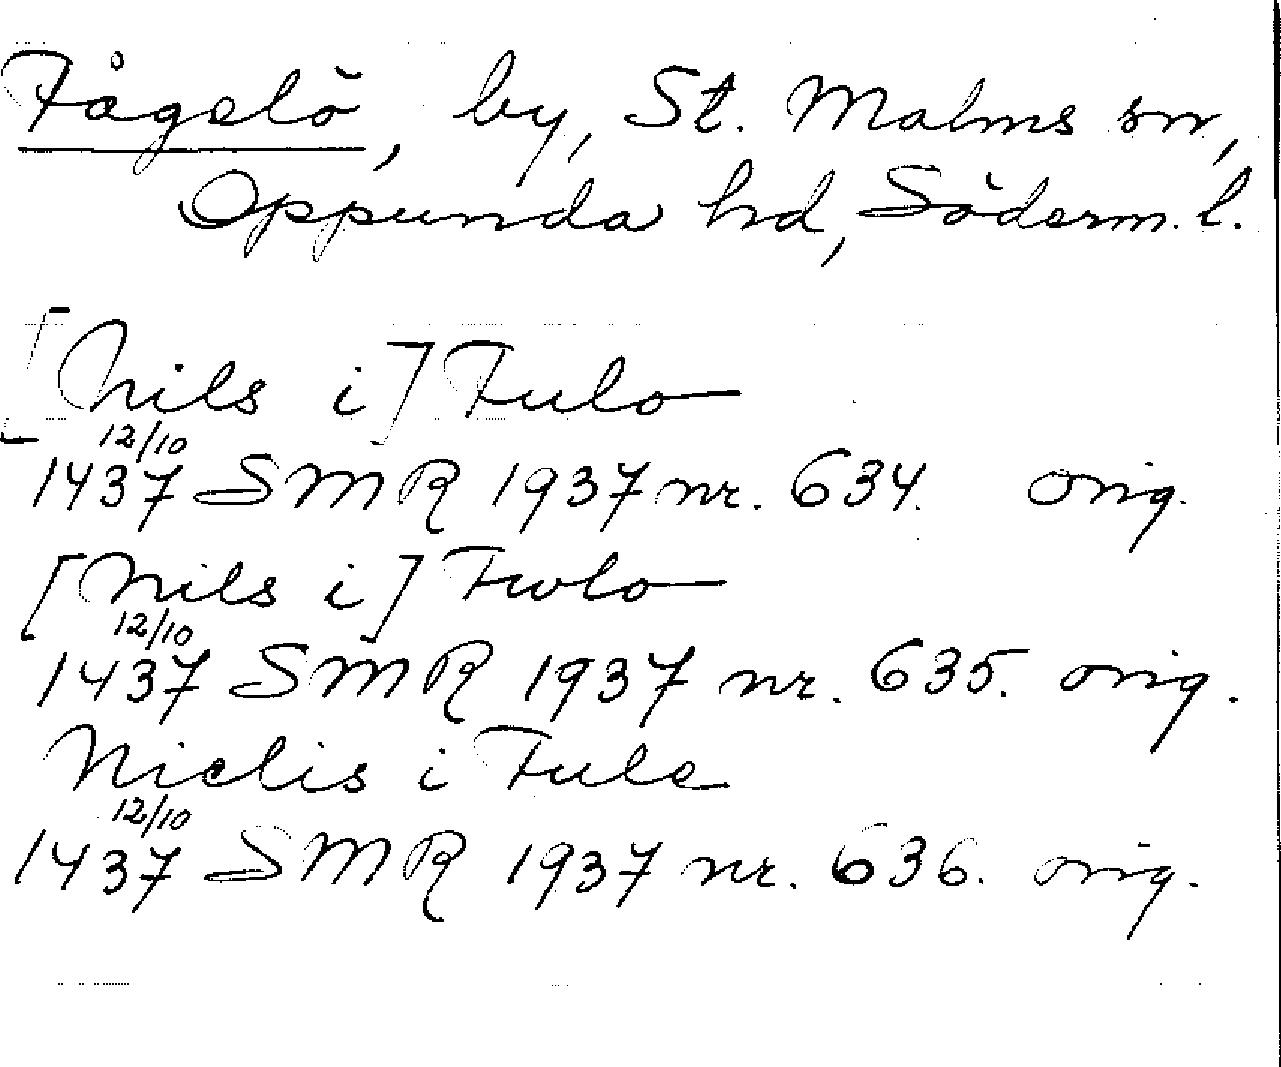 Fågelö, by, St. Malms sn,
Oppunda hd, Söderm. l.
[Nils i] Fulo
12/10
1437 SMR 1937 nr. 634. orig.
[Nils i] Fwlo
12/10
1437 SMR 1937 nr. 635. orig.
Niclis i Fule
12/10
1437 SMR 1937 nr. 636. orig.